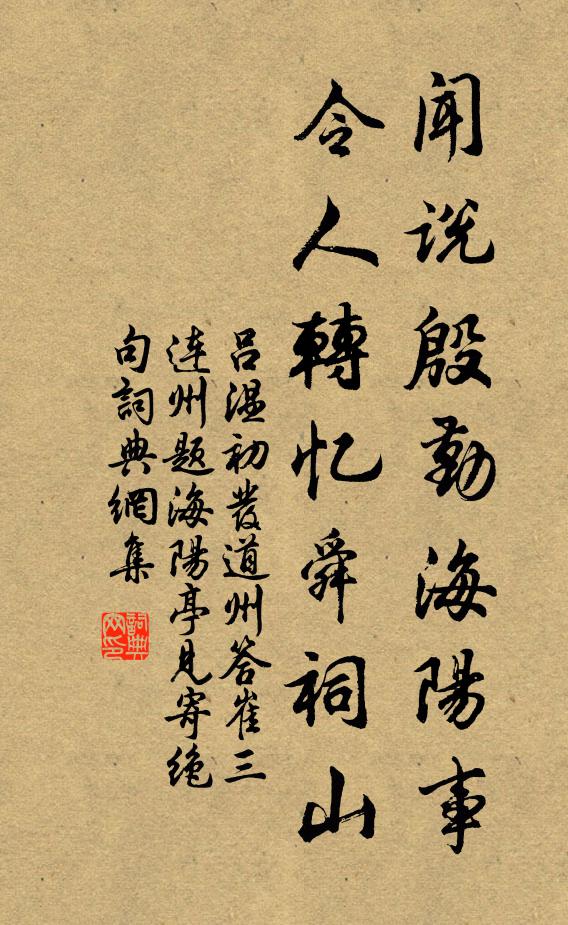 闻说殷勤海陽事
令人轉忆舜祠山
吕温初發道州答崔三
连州题海陽亭见寄绝
句詞典網集
詞典
网印